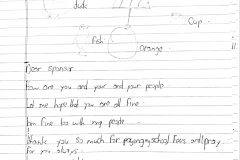 duck
Cup
fish
Orange
Dear sponsor
How are you and your and your people
Let me hope that you are all fine
Iam fine too with my people
thank you so much for paying my school fees and pray
for you always